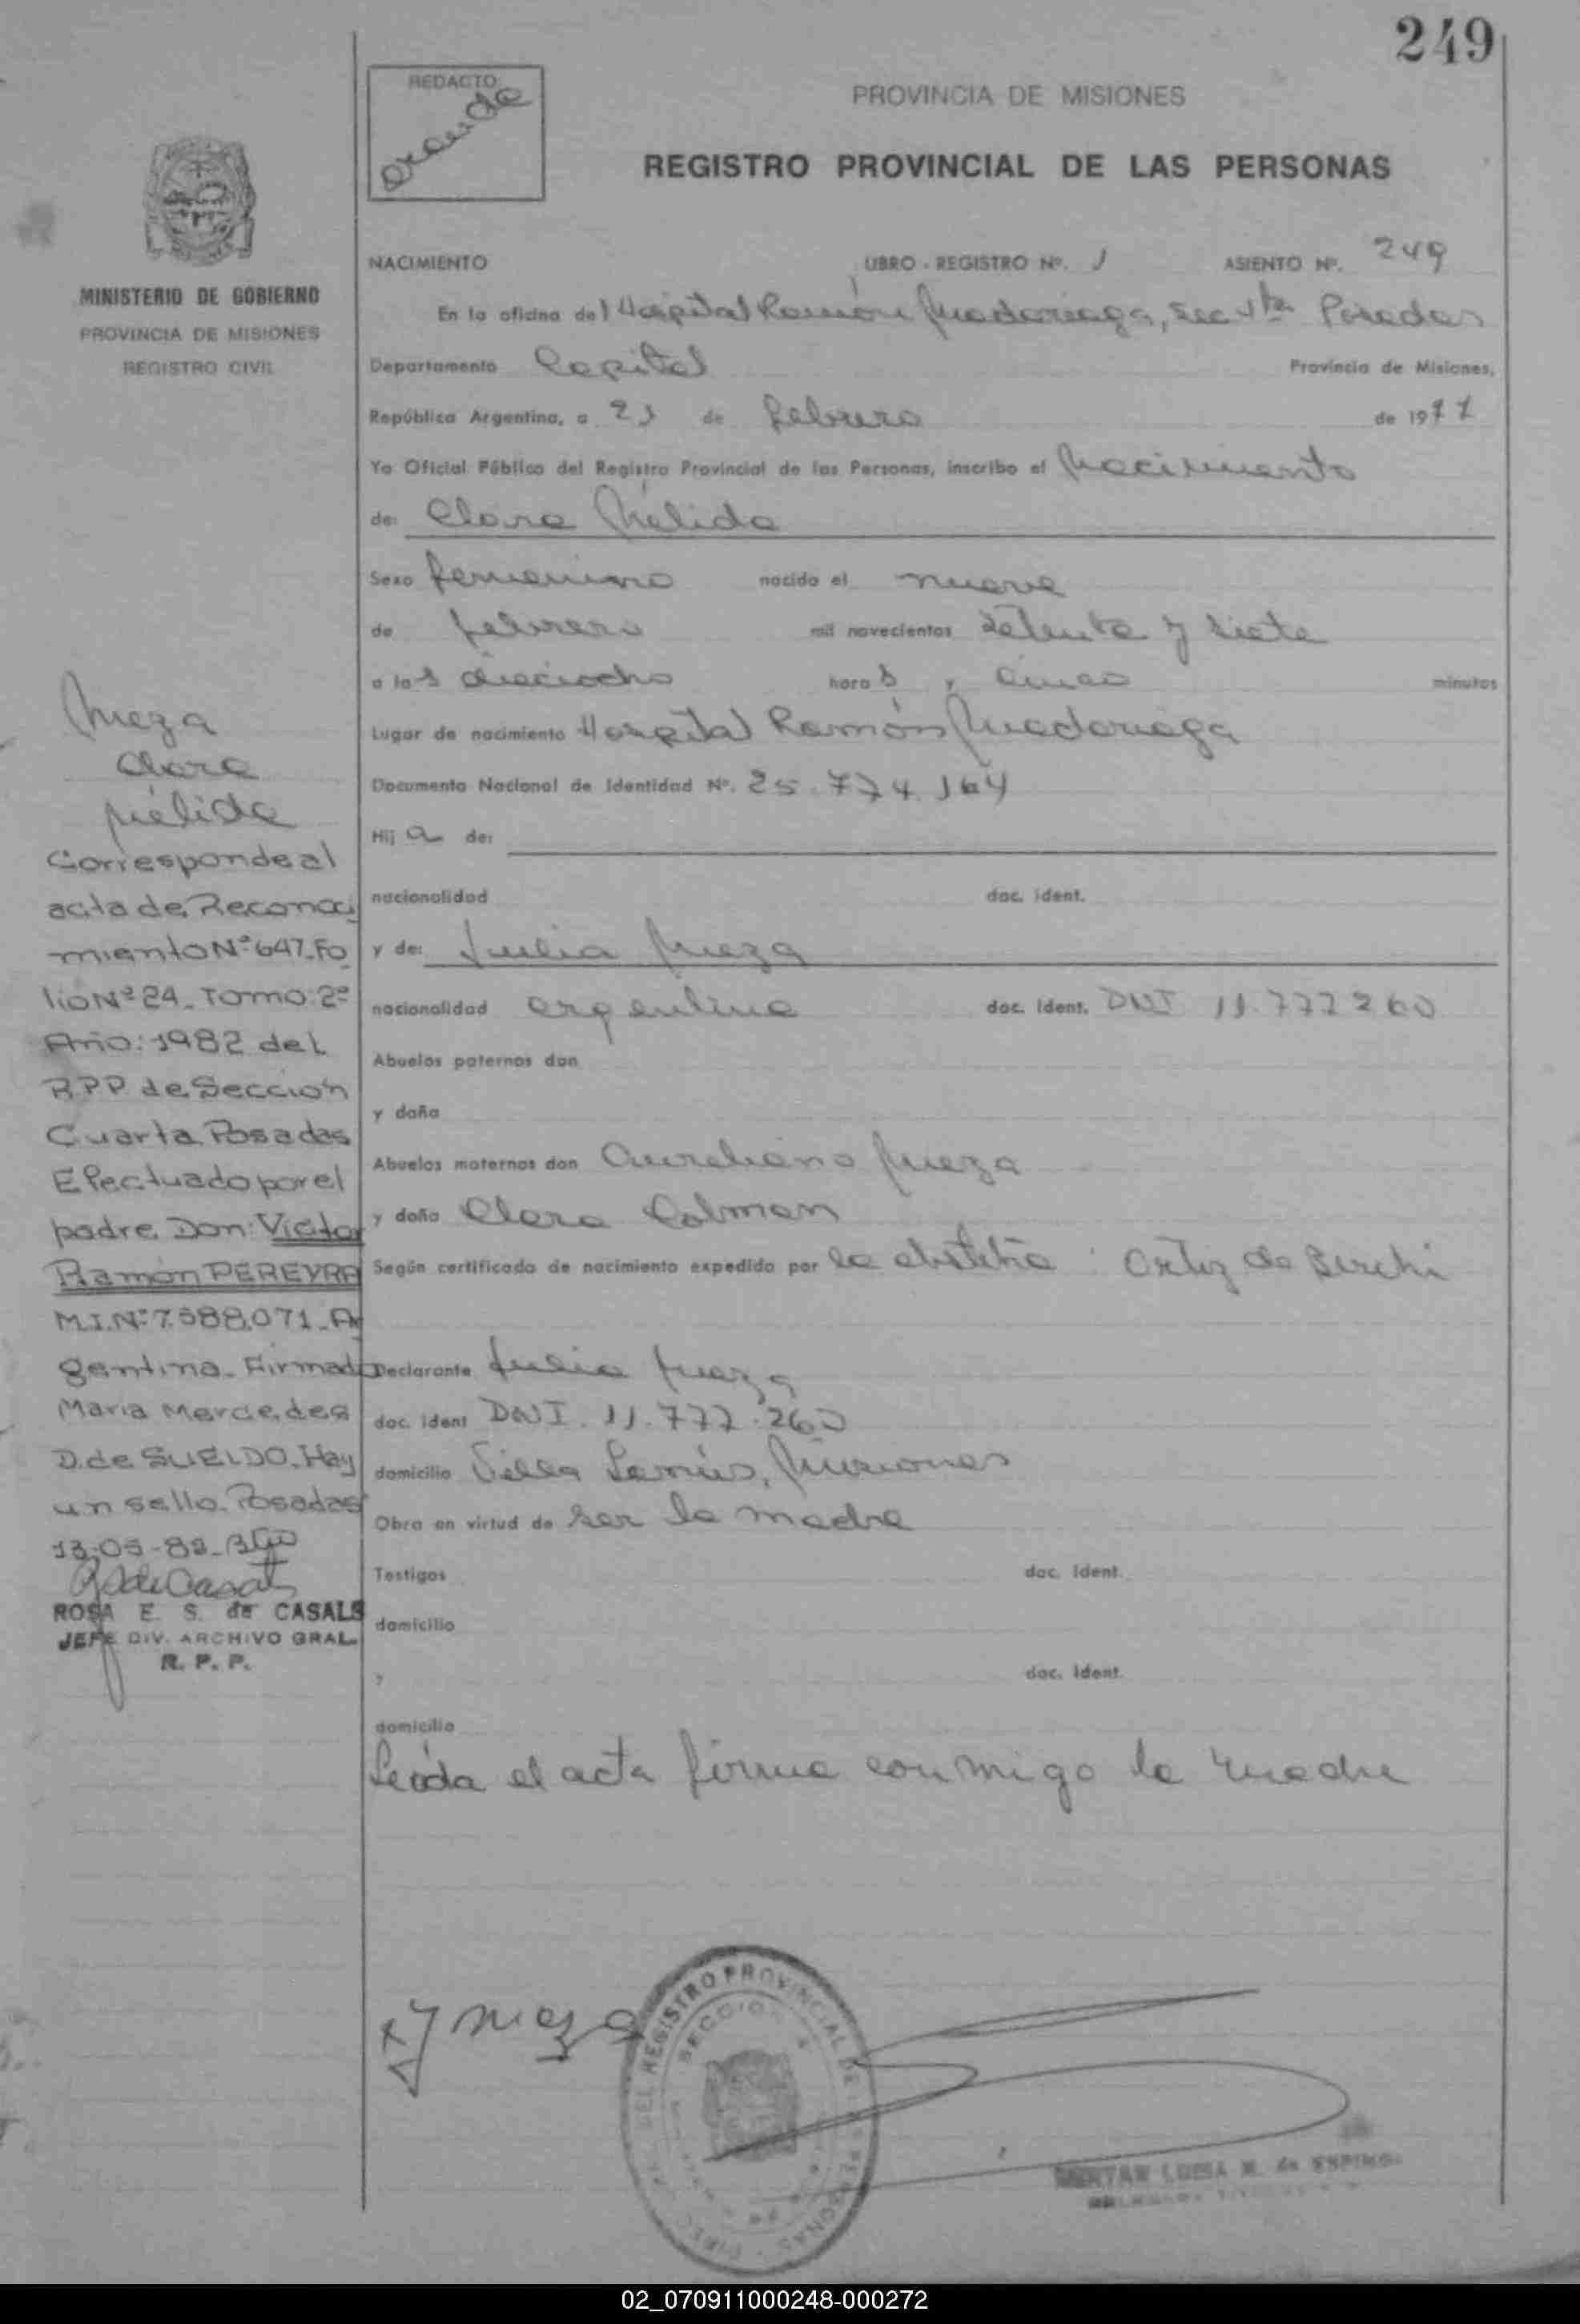 249
REDACTO
PROVINCIA DE MISIONES
REGISTRO PROVINCIAL DE LAS PERSONAS
MINISTERIO DE GOBIERNO
PROVINCIA DE MISIONES
REGISTRO CIVIL
NACIMIENTO LIBRO - REGISTRO Nº. 1 ASIENTO Nº. 249
En la oficina del Hospital Ramón Madariaga, Sec 4ta Posadas
Departamento Capital Provincia de Misiones,
República Argentina, a 21 de febrero de 1977
Yo Oficial Público del Registro Provincial de las Personas, inscribo el Nacimiento
de: Clara Mélida
Sexo femenino nacido el nueve
de febrero mil novecientos setenta y siete
a las dieciocho horas y cinco minutos
Lugar de nacimiento Hospital Ramón Madariaga
Documento Nacional de Identidad Nº. 25.774.164
Hija de:
nacionalidad doc. ident.
y de: Julia Meza
nacionalidad argentina doc. ident. DNI 11.777260
Abuelos paternos don
y doña
Abuelos maternos don Aureliano Meza
y doña Clara Colman
Según certificado de nacimiento expedido por la obstetra : Ortiz de
Declarante Julia Meza
doc. ident DNI. 11.777.260
domicilio Villa Lanús, Misiones
Obra en virtud de ser la madre
Testigos doc. ident.
domicilio
y doc. ident.
domicilio
Leída el acta firma conmigo la madre
Meza
Clara
Mélida
Corresponde al
acta de Reconoci
miento Nº 647. Fo
lio Nº 24. Tomo: 2º
Año: 1982 del
R.P.P. de Sección
Cuarta Posadas
Efectuado por el
padre Don: Victor
Ramón PEREYRA
M.I. Nº 7.588.071. Ar
gentina. Firmado
Maria Mercedes
D. de SUELDO. Hay
un sello. Posadas
13-05-82.
ROSA E. S. de CASALS
JEFE DIV. ARCHIVO GRAL.
R. P. P.
Meza
DEL REGISTRO PROVINCIAL DE LAS PERSONAS
SECCION
LUISA M. de
02_070911000248-000272